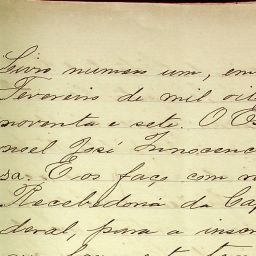 Livro numero um, em
Fevereiro de mil oit
noventa e sete. O E
onel José Innocenc
sa. E os faço com r
Recebedoria da Cap
deral, para a inscr